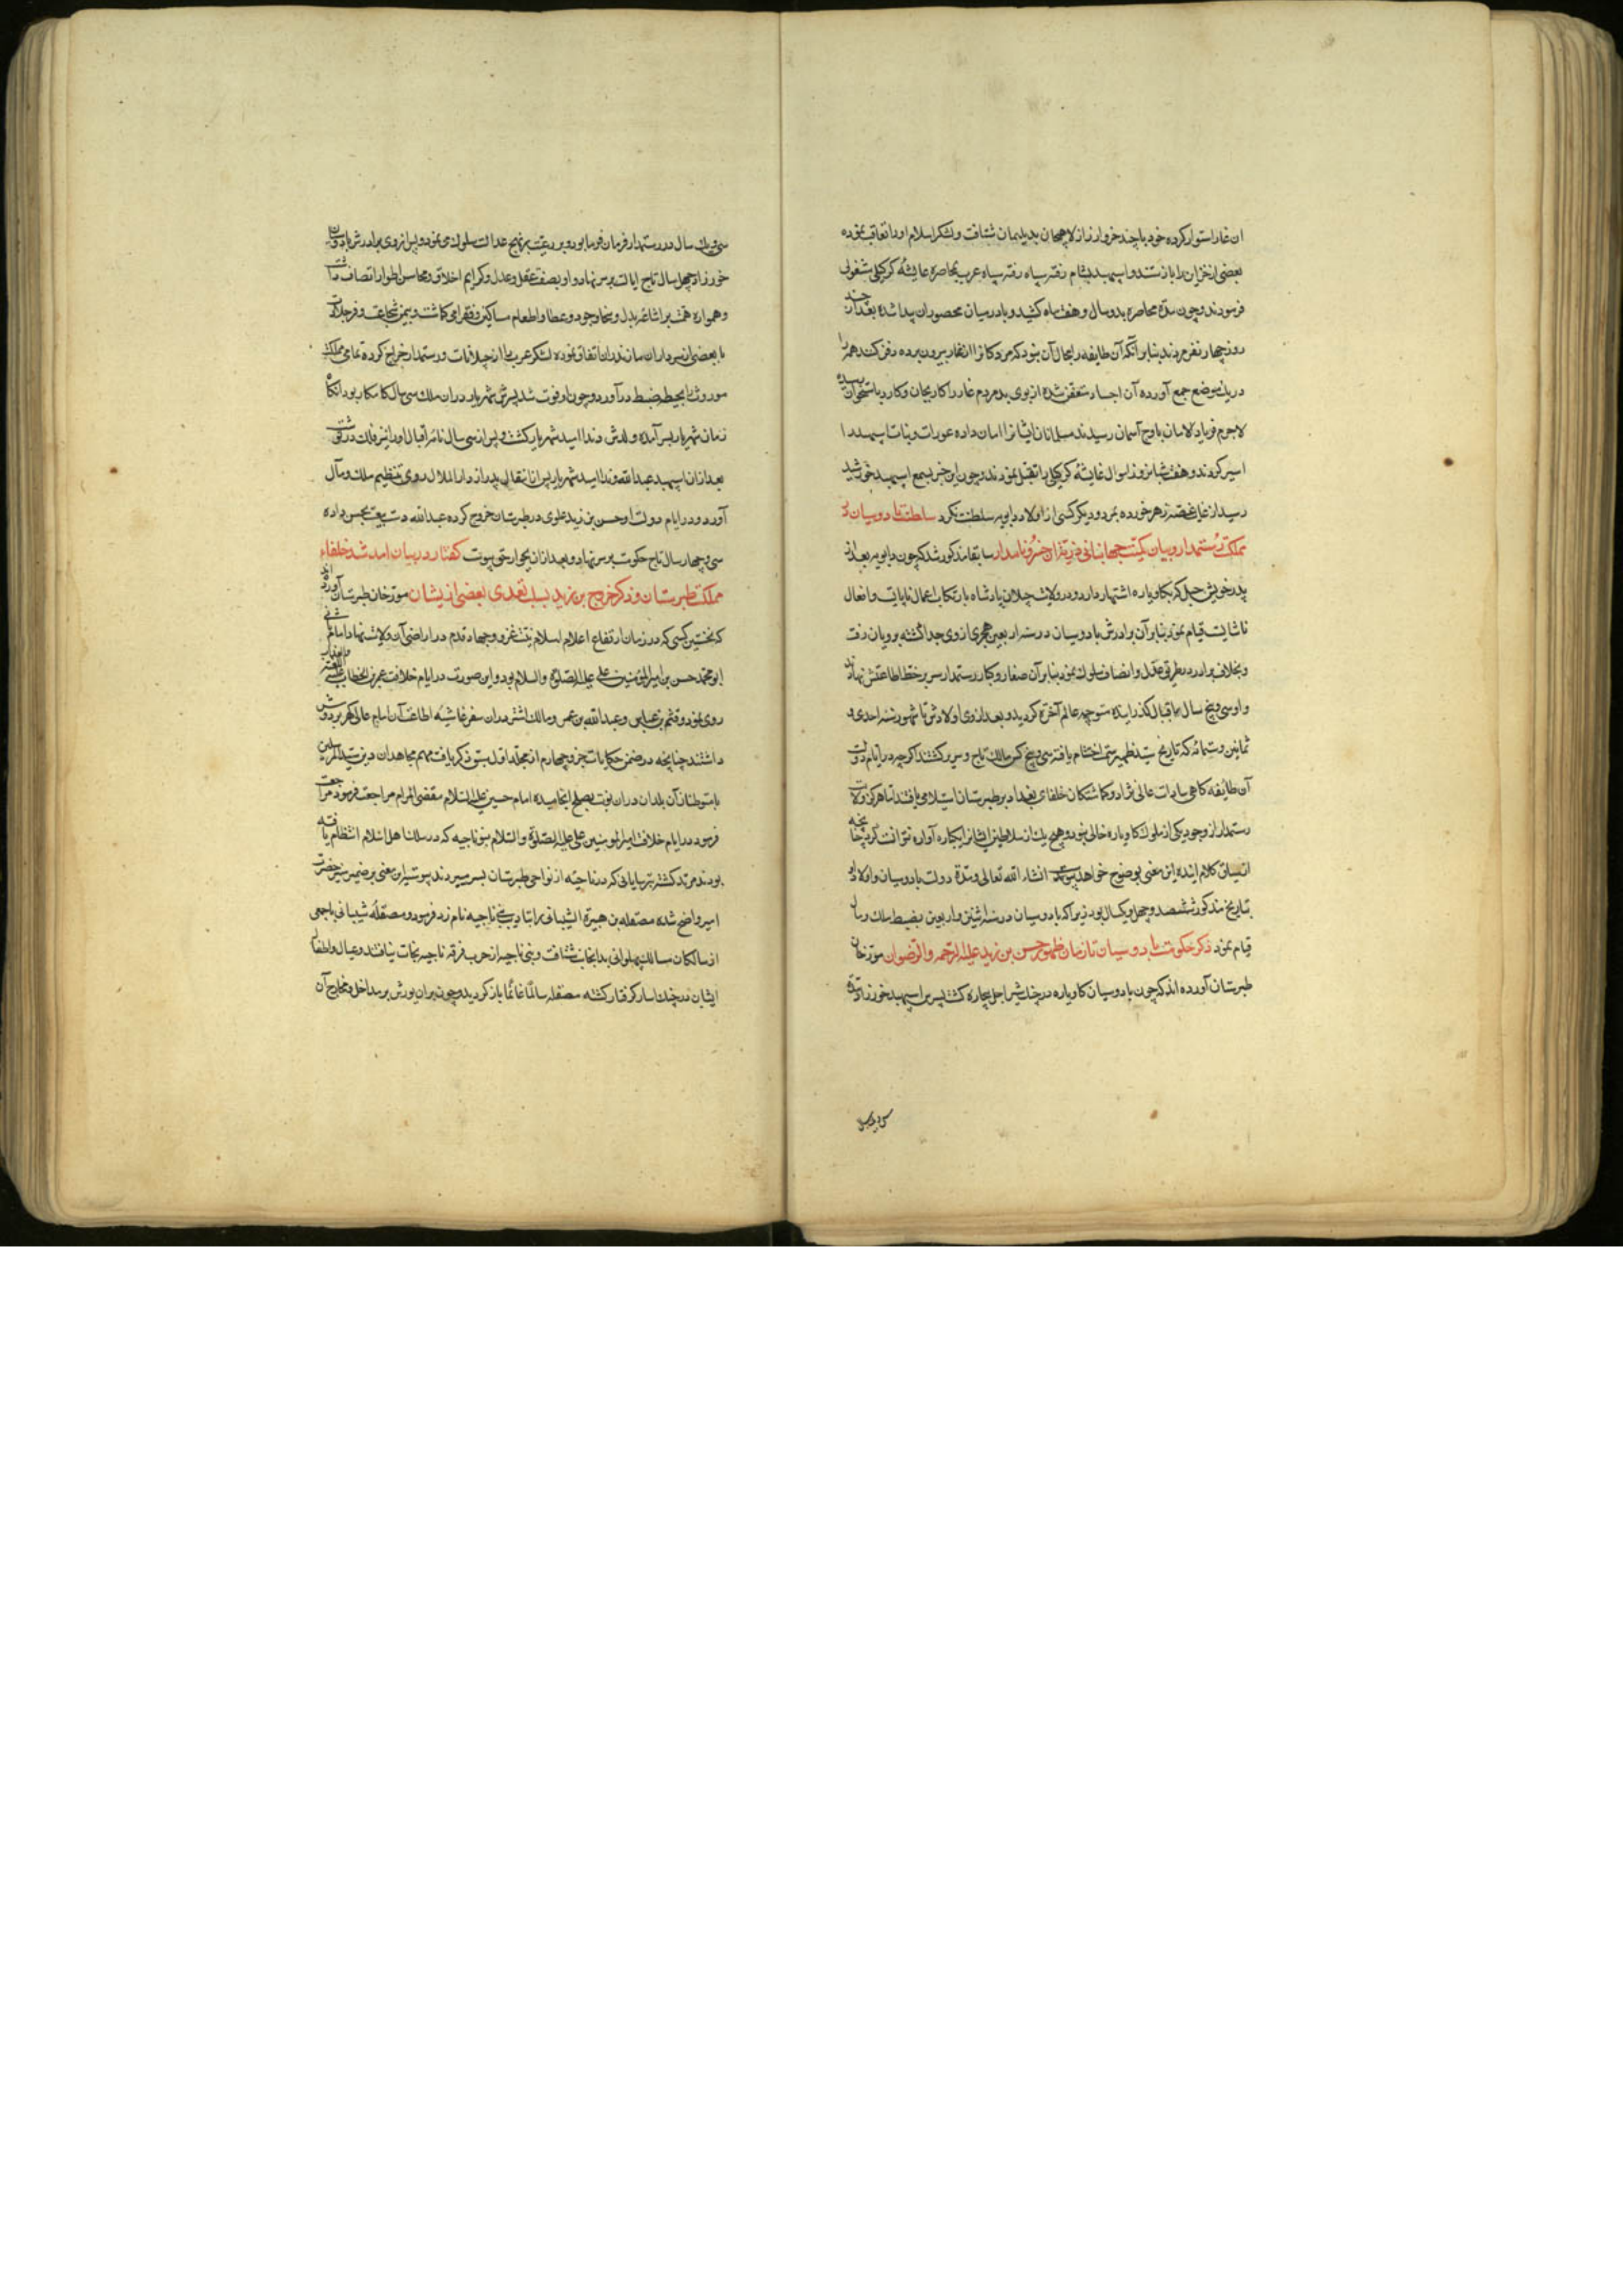 آن غار استوار کرده خود با چند خروار زر از لاهجان بدیلمان شتافت و لشکر اسلام او را تعاقب نموده
بعضی از خزاین را باز ستدند و اسپهبد بشام رفته سپاه عرب بمحاصره عایشه کرکیلی مشغولی
فرمودند و چون مدة محاصره بدو سال و هفت ماه کشید وبا در میان محصوران پیدا شده بعد از چند
روز چهار نفر مردند بنابر آنکه آن طایفه را مجال آن نبود که مردکانرا از غار بیرون برده دفن کنند همه را
در یک موضع جمع آورده آن اجساد متعفن شده از بوی بد مردم غار را کار بجان و کارد باستخوان رسیده
لاجرم فریاد الامان باوج آسمان رسیدند مسلمانان ایشانرا امان داده عورات و بنات اسپهبد را
اسیر کردند و هفت شبانروز اموال عایشه کرکیلی را نقل نمودند و چون این خبر بسمع اسپهبد خورشید
رسید از غایت غصه زهر خورده بمرد و دیگر کسی از اولاد دابویه سلطنت نکرد سلطنت بادوسپان در
مملکت رستمدار و بیان کیفیت جهانبانی فرزندان خسرو نامدار سابقا مذکور شد که چون دابویه بعد از
پدر خویش جیل که بکاوباره اشتهار دارد در ولایت جیلان پادشاه بارتکاب اعمال ناپایست و افعال
ناشایست قیام نمود بنابر آن برادرش بادوسپان در سنه اربعین هجری از وی جدا گشته برویان رفت
و بخلاف برادر در طریق عدل و انصاف سلوک نمود بنابر آن صغار و کبار رستمدار سر بر خط اطاعتش نهادند
و او سی و پنج سال باقبال گذرانیده متوجه عالم آخرة گردید و بعد از وی اولادش تا شهور سنه احدی و
ثمانین و ستمائه که تاریخ سید ظهیر سمت اختتام یافته سی و پنج کس مالک تاج و سریر گشتند اگرچه در ایام دولت
آن طایفه کاهی سادات عالی نژاد و گماشتگان خلفای بغداد بر طبرستان استیلا می یافتند اما هرگز ولایت
رستمدار از وجود یکی از ملوک کاوباره خالی نبود و هیچ یک از سلاطین ایشانرا یکباره آواره نتوانست کرد چنانچه
از سیاق کلام آینده این معنی بوضوح خواهد پیوست انشاء الله تعالی و مدة دولت بادوسپان و اولاد او
بتاریخ مذکور ششصد و چهل و یک سال بود زیرا که بادوسپان در سنه اثنین و اربعین بضبط ملک رویان
قیام نمود ذکر حکومت بادوسپان تا زمان ظهور حسن بن زید علیه الرحمه والرضوان مورخان
طبرستان آورده اند که چون بادوسپان کاوباره در چنک شیر اجل بیچاره گشت پسرش اسپهبد خورزاد
سی و یک سال در رستمدار فرمان فرما بود و بر رعیت بر نهج عدالت سلوک می نمود و پس از وی برادرش بادوسپان
خورزاد چهل سال تاج ایالت بر سر نهاد و او بصفت عقل و عدل و کرایم اخلاق و محاسن اطوار اتصاف داشت
و همواره همت بر اشاعه بذل و سخا و جود و عطا و اطعام مساکین و فقرا می گماشت و بیمن شجاعت و فر جلادت
با بعضی از سرداران مازندران اتفاق نموده لشکر عرب را از جیلانات و رستمدار اخراج کرده تمامی مملکت
موروث را بحیطه ضبط در آورد و چون او فوت شد پسرش شهریار در آن ملک سی سال کامکار بود آنکاه
زمان شهریار بسر آمده ولدش وندا امید شهریار گشت و پس از سی سال نامه اقبال او را نیز فلک در نوشت
بعد از آن اسپهبد عبد الله وندا امید شهریار پس از انتقال پدر از دار الملال روی بتنظیم ملک و مال
آورد و در ایام دولت او حسن بن زید علوی در طبرستان خروج کرده عبد الله دست بیعت بحسن داده
سی و چهار سال تاج حکومت بر سر نهاد و بعد از آن بجوار حق پیوست گفتار در بیان آمد شد خلفاء
مملکت طبرستان و ذکر خروج بن زید بسبب تعدی بعضی از ایشان مورخان طبرستان آورده اند
که نخستین کسی که در زمان ارتفاع اعلام اسلام بنیت غزو و جهاد قدم در اراضی آن ولایت نهاد امام
ابو محمد حسن بن امیر المؤمنین علی علیه الصلوة والسلام بود و این صورت در ایام خلافت عمر بن الخطاب
روی نمود و قثم بن عباس و عبد الله بن عمر و مالک اشتر در آن سفر غاشیه اطاعت آن امام عالی گهر بر دوش
داشتند چنانچه در ضمن حکایات جزو چهارم از مجلد اول سبق ذکر یافت مهم مجاهدان دین سید المرسلین
با متوطنان آن بلدان در آن نوبت بصلح انجامیده امام حسین علیه السلام مقضی المرام مراجعت فرمود
فرمود در ایام خلافت امیر المومنین علی علیه الصلوة والسلام بنو ناجیه که در سلک اهل اسلام انتظام یافته
بودند مرتد گشته ترسایانی که در ناحیه از نواحی طبرستان بسر میبردند پیوستند این معنی بر ضمیر منیر حضرت
امیر واضح شده مصقله بن هبیرة الشیبانی را بتادیب بنی ناجیه نام زد فرمود و مصقله شیبانی با جمعی
از سالکان مسالک پهلوانی بدانجانب شتافت و بنی ناجیه از حرب فرقه ناجیه نجات نیافتند و عیال و اطفال
ایشان در چنک اسار گرفتار گشته مصقله سالما غانما باز گردید و چون بر ان یورش بر مداخل و مخارج آن